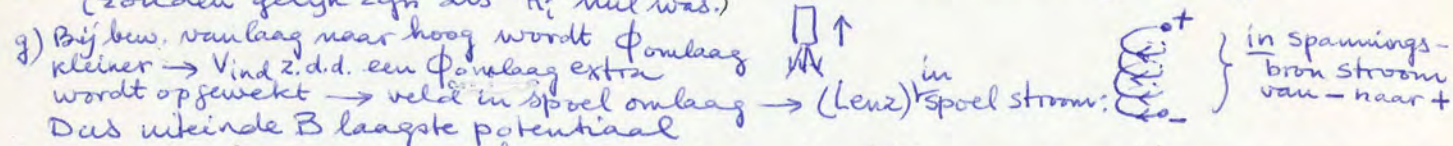 (zouden gelijk zijn als Ri nul was.)
g) Bij bew. van laag naar hoog wordt Φomlaag
kleiner → Vind z.d.d. een Φomlaag extra
wordt opgewekt → veld in spoel omlaag → (Lenz) in spoel stroom:
+
-
} in spannings-
bron stroom
van – naar +
Dus uiteinde B laagste potentiaal